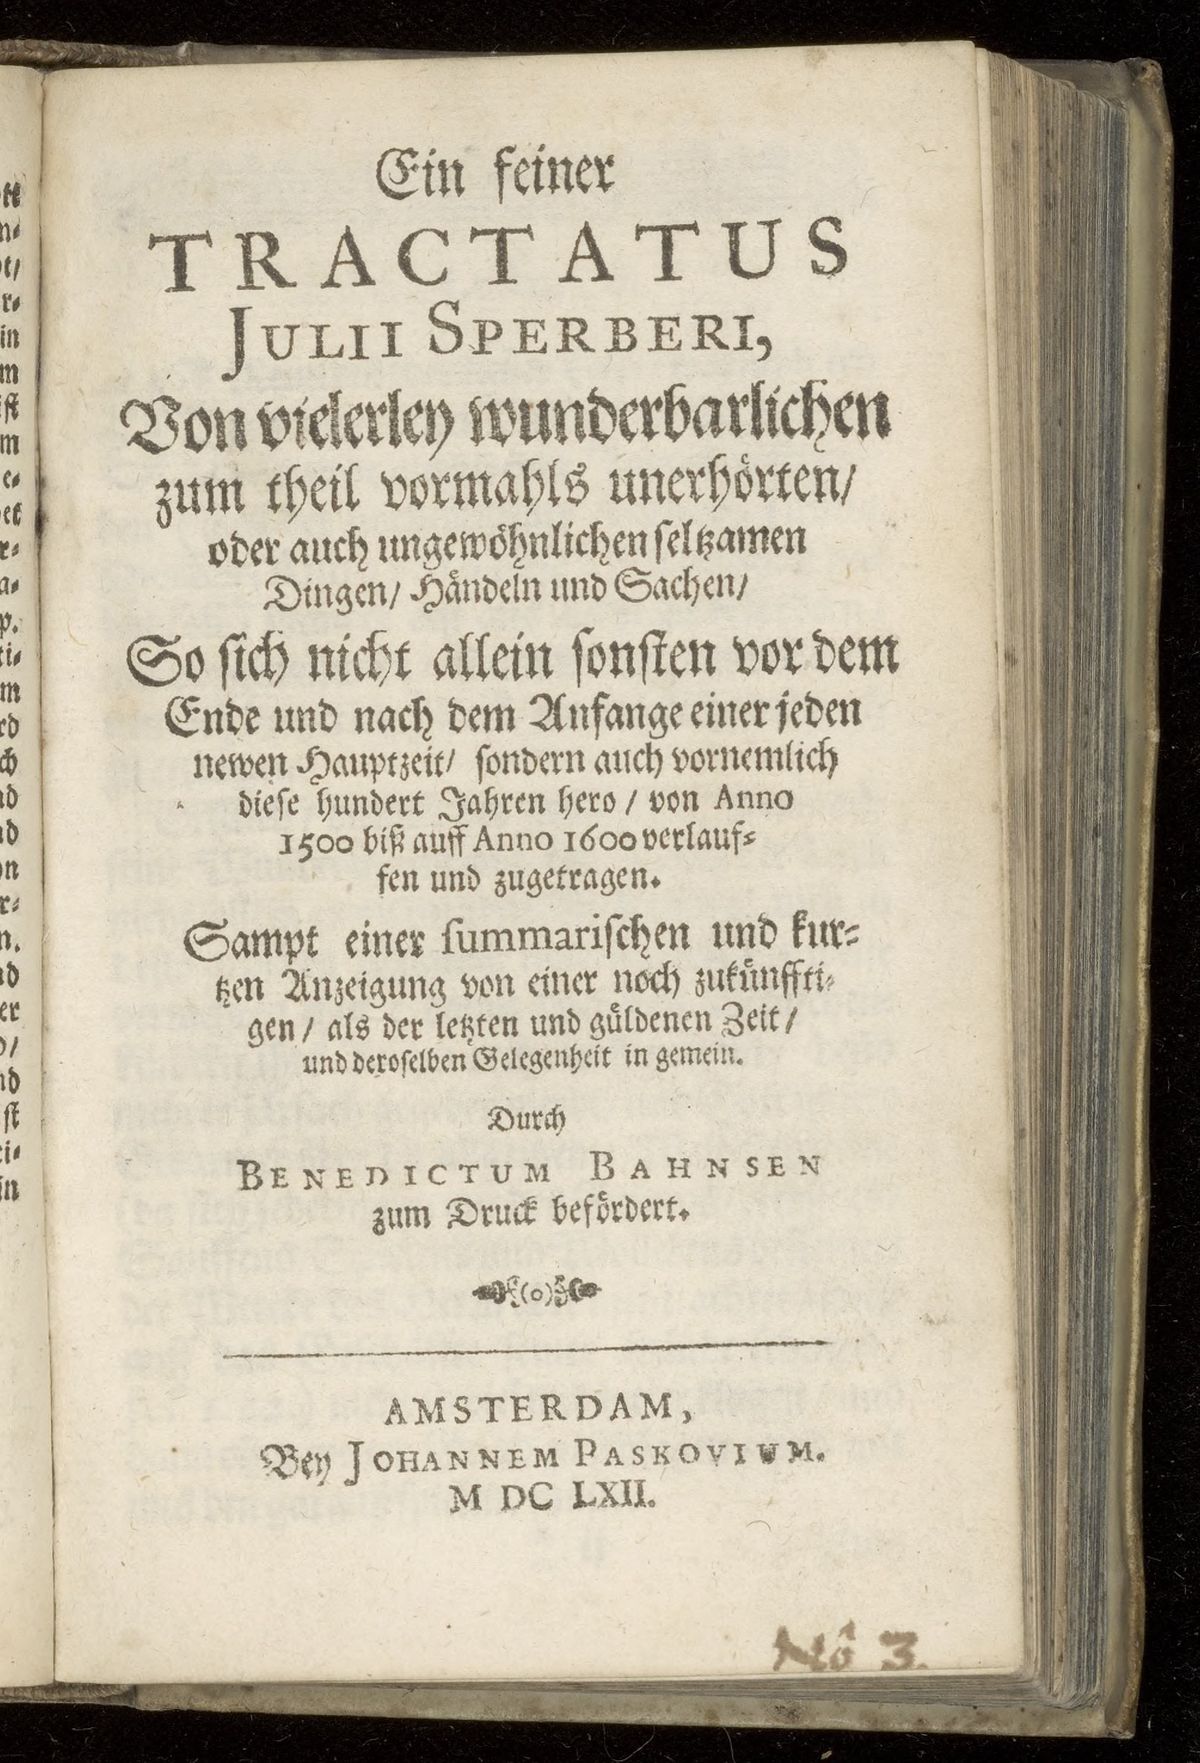 Ein feiner
TRACTATUS
JULII SPERBERI,
Von vielerley wunderbarlichen
zum theil vormahls unerhörten/
oder auch ungewöhnlichen seltzamen
Dingen/ Händeln und Sachen/
So sich nicht allein sonsten vor dem
Ende und nach dem Anfange einer jeden
newen Hauptzeit/ sondern auch vornemlich
diese hundert Jahren hero / von Anno
1500 biß auff Anno 1600 verlauf-
fen und zugetragen.
Sampt einer summarischen und kur-
tzen Anzeigung von einer noch zukünffti-
gen / als der letzten und güldenen Zeit /
und deroselben Gelegenheit in gemein.
Durch
BENEDICTUM BAHNSEN
zum Druck befördert.
(o)
AMSTERDAM,
Bey JOHANNEM PASKOVIUM.
M DC LXII.
No 3.